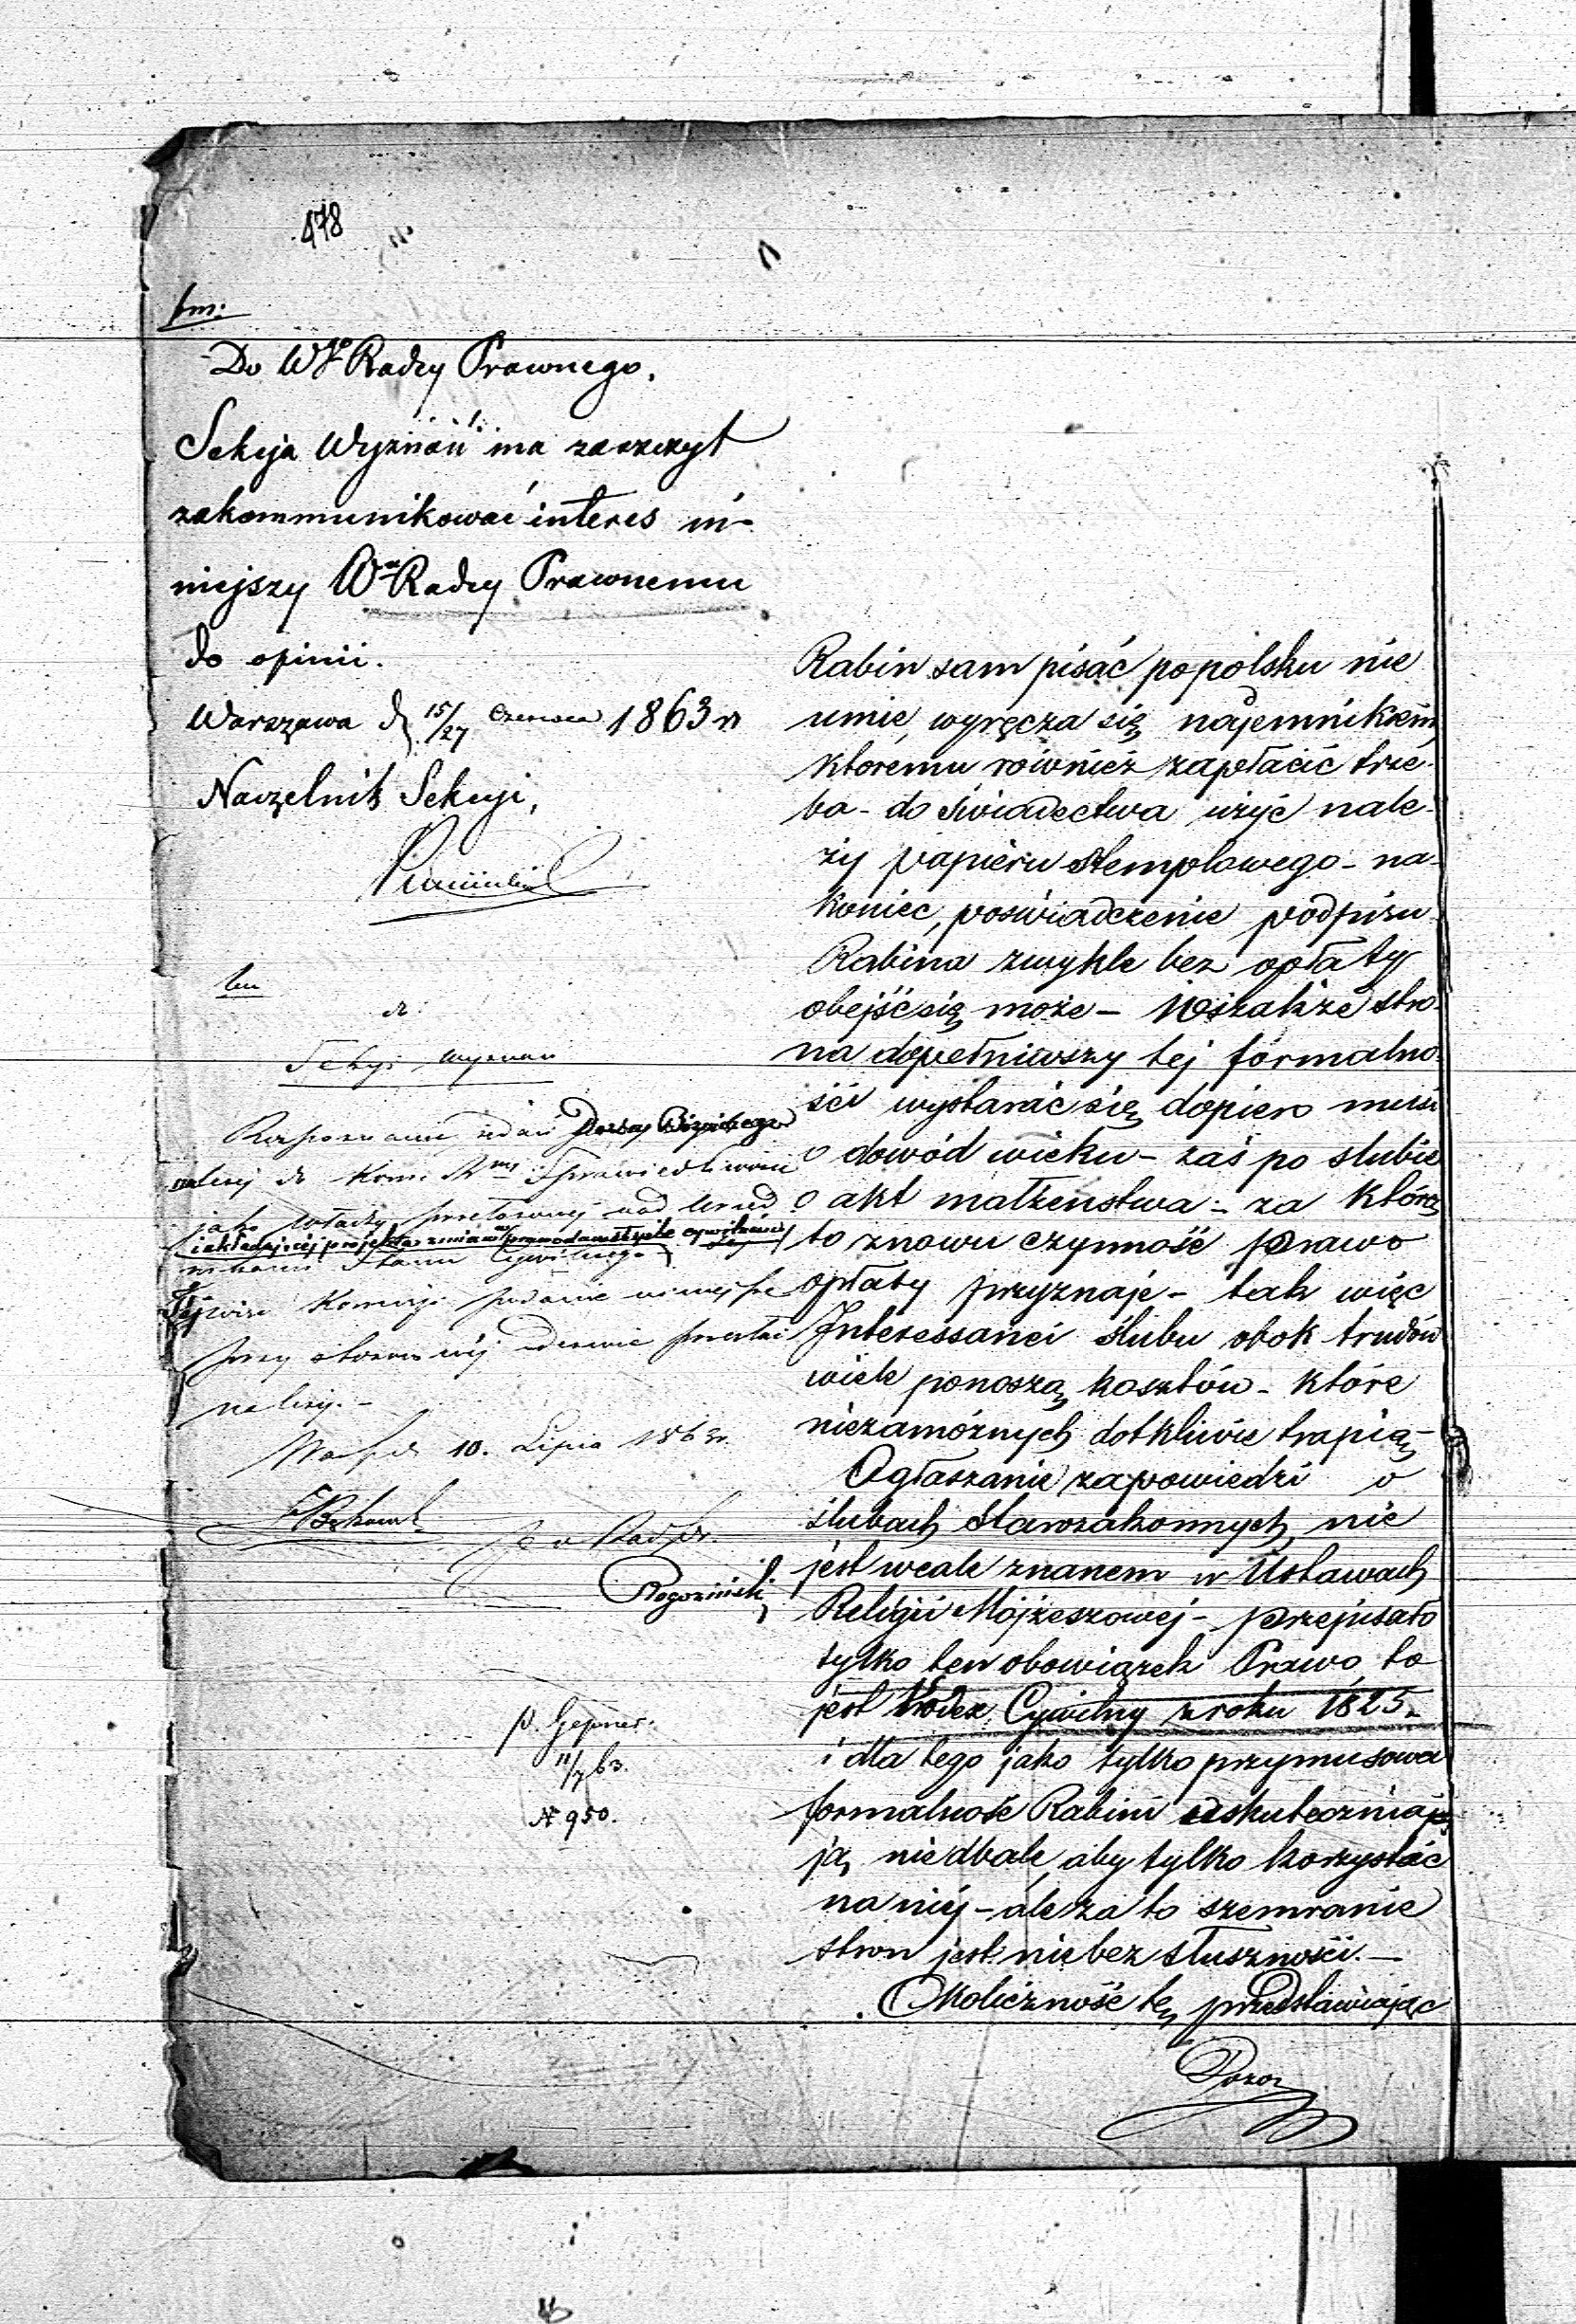 478
pm:
Do Wgo Radcy Prawnego.
Sekcja Wyznań ma zaszczyt
zakommunikować interes ni-
niejszy Wu Radcy Prawnemu
do opinii.
Warszawa d 15/27 Czerwca 1863 r
Naczelnik Sekcyi,
do
Sekcyi Wyznań
Rozpoznanie żądań Dozoru Bożniczego
należy do Kom. Sprawiedliwości
jako Władzy przełożonej nad Urzęd
i układającej projekta zmian w prawodawstwie cywilném
nikami Stanu Cywilnego
Tejże Komisyi podanie niniejsze
przy stosownéj odezwie przesłać
należy. -
10. Lipca 1863 r.
Rogoziński
p. Gepner.
11/7 63.
N 950.
Rabin sam pisać po polsku nie
umie, wyręcza się najemnikiem,
któremu również zapłacić trze-
ba - do świadectwa użyć nale-
ży papieru stemplowego - na-
koniec, poświadczenie podpisu
Rabina zwykle bez opłaty
obejść się może - Wszakże stro-
na dopełniwszy tej formalno-
ści wystarać się dopiero musi
o dowód wieku - zaś po slubie
o akt małżenstwa - za którą
to znowu czynność prawo
opłaty przyznaje - tak więc
Interessanci ślubu obok trudów
wiele ponoszą kosztów - które
niezamóżnych dotkliwie trapią -
Ogłaszanie zapowiedzi o
ślubach Starozakonnych nie
jest wcale znanem w Ustawach
Religii Mojżeszowej - przepisało
tylko ten obowiązek Prawo to
jest Kodex Cywilny z roku 1825.
i dla tego jako tylko przymusowa
formalność Rabini uskuteczniają
ją niedbale, aby tylko korzystać
na niéj - ale za to szemranie
stron jest nie bez słuszności. -
Okoliczność tę przedstawiając
Dozor